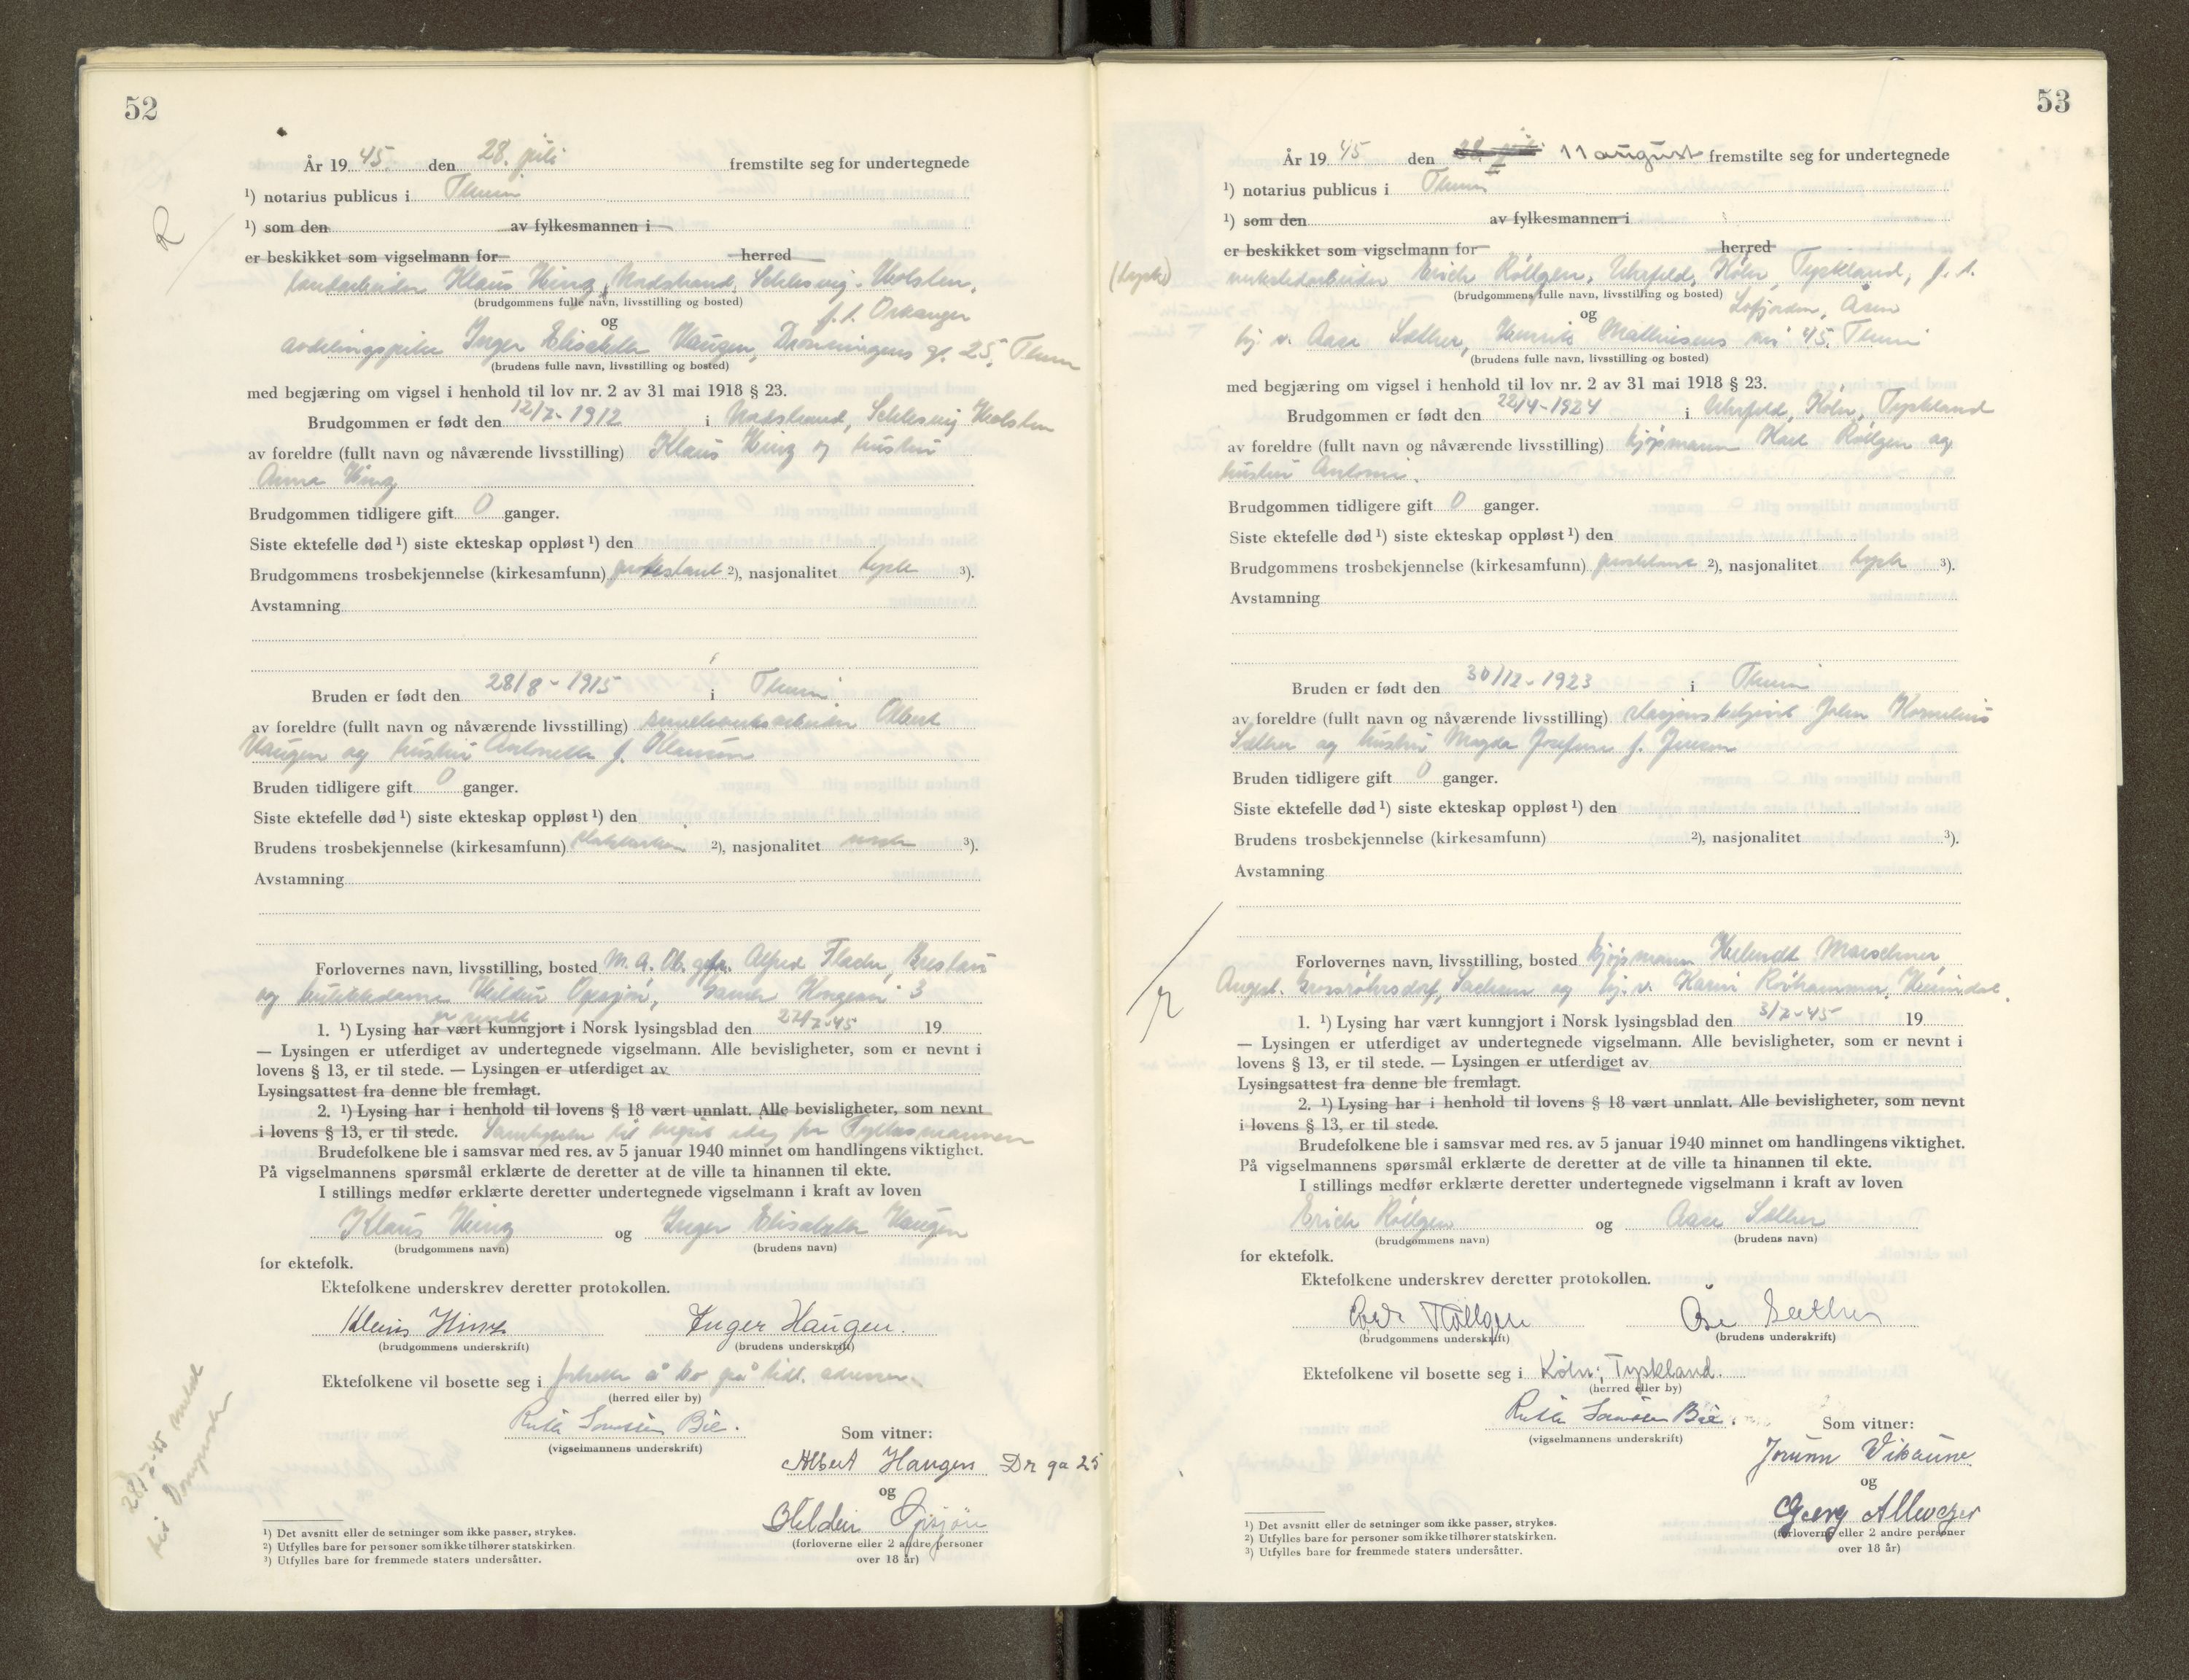 52
År 19 45. den 28. juli fremstilte seg for undertegnede
¹) notarius publicus i
¹) som den av fylkesmannen i
er beskikket som vigselmann for herred
R
Klaus Hinz, Nordstrand, Schlesvig-Holsten,
(brudgommens fulle navn, livsstilling og bosted)
f.t. Orkanger
og
Inger Elisabeth Haugen, Dronningens gt. 25,
(brudens fulle navn, livsstilling og bosted)
med begjæring om vigsel i henhold til lov nr. 2 av 31 mai 1918 § 23.
Brudgommen er født den 12/7-1912 i Nordstrand, Schlesvig-Holsten
av foreldre (fullt navn og nåværende livsstilling) Klaus Hinz og hustru
Anna Hinz
Brudgommen tidligere gift 0 ganger.
Siste ektefelle død ¹) siste ekteskap oppløst ¹) den
Brudgommens trosbekjennelse (kirkesamfunn) protestant ²), nasjonalitet tysk ³).
Avstamning
Bruden er født den 28/8-1915 i
av foreldre (fullt navn og nåværende livsstilling) Albert
Haugen og hustru
Bruden tidligere gift 0 ganger.
Siste ektefelle død ¹) siste ekteskap oppløst ¹) den
Brudens trosbekjennelse (kirkesamfunn) statskirken ²), nasjonalitet norsk ³).
Avstamning
Forlovernes navn, livsstilling, bosted Alfred Breslau
og
er sendt
1. ¹) Lysing har vært kunngjort i Norsk lysingsblad den 19
— Lysingen er utferdiget av undertegnede vigselmann. Alle bevisligheter, som er nevnt i
lovens § 13, er til stede. — Lysingen er utferdiget av
Lysingsattest fra denne ble fremlagt.
2. ¹) Lysing har i henhold til lovens § 18 vært unnlatt. Alle bevisligheter, som nevnt
i lovens § 13, er til stede. Samtykke til idag fra Fylkesmannen
Brudefolkene ble i samsvar med res. av 5 januar 1940 minnet om handlingens viktighet.
På vigselmannens spørsmål erklærte de deretter at de ville ta hinannen til ekte.
I stillings medfør erklærte deretter undertegnede vigselmann i kraft av loven
Klaus Hinz og Inger Elisabeth Haugen
(brudgommens navn) (brudens navn)
for ektefolk.
Ektefolkene underskrev deretter protokollen.
Klaus Hinz Inger Haugen.
(brudgommens underskrift) (brudens underskrift)
Ektefolkene vil bosette seg i å bo på
(herred eller by)
Ruth
(vigselmannens underskrift)
Som vitner:
Albert Haugen Dr ga 25
og
(forloverne eller 2 andre personer
over 18 år)
28/7-45 meldt
¹) Det avsnitt eller de setninger som ikke passer, strykes.
²) Utfylles bare for personer som ikke tilhører statskirken.
³) Utfylles bare for fremmede staters undersåtter.
53
År 19 45 den 11 august fremstilte seg for undertegnede
¹) notarius publicus i
¹) som den av fylkesmannen i
er beskikket som vigselmann for herred
(tysk) Erich Röllgen, Köln, Tyskland, f. t.
(brudgommens fulle navn, livsstilling og bosted)
Lofjorden, Åsen
og
hj. v. Aase Sæther, Henrik Mathisens vei 45,
(brudens fulle navn, livsstilling og bosted)
med begjæring om vigsel i henhold til lov nr. 2 av 31 mai 1918 § 23.
Brudgommen er født den 22/4-1924 i Köln, Tyskland
av foreldre (fullt navn og nåværende livsstilling) kjøpmann Karl Röllgen og
hustru
Brudgommen tidligere gift 0 ganger.
Siste ektefelle død ¹) siste ekteskap oppløst ¹) den
Brudgommens trosbekjennelse (kirkesamfunn) protestant ²), nasjonalitet tysk ³).
Avstamning
Bruden er født den 30/12-1923 i
av foreldre (fullt navn og nåværende livsstilling) John Kornelius
Sæther og hustru Magda Josefine f. Jensen
Bruden tidligere gift 0 ganger.
Siste ektefelle død ¹) siste ekteskap oppløst ¹) den
Brudens trosbekjennelse (kirkesamfunn) ²), nasjonalitet ³).
Avstamning
Forlovernes navn, livsstilling, bosted kjøpmann
Grossröhrsdorf, Sachsen og hj. v. Karin
1. ¹) Lysing har vært kunngjort i Norsk lysingsblad den 3/7-45 19
— Lysingen er utferdiget av undertegnede vigselmann. Alle bevisligheter, som er nevnt i
lovens § 13, er til stede. — Lysingen er utferdiget av
Lysingsattest fra denne ble fremlagt.
2. ¹) Lysing har i henhold til lovens § 18 vært unnlatt. Alle bevisligheter, som nevnt
i lovens § 13, er til stede.
Brudefolkene ble i samsvar med res. av 5 januar 1940 minnet om handlingens viktighet.
På vigselmannens spørsmål erklærte de deretter at de ville ta hinannen til ekte.
I stillings medfør erklærte deretter undertegnede vigselmann i kraft av loven
Erich Röllgen og Aase Sæther
(brudgommens navn) (brudens navn)
for ektefolk.
Ektefolkene underskrev deretter protokollen.
Röllgen Sæther
(brudgommens underskrift) (brudens underskrift)
Ektefolkene vil bosette seg i Köln, Tyskland.
(herred eller by)
Ruth
(vigselmannens underskrift)
Som vitner:
Jorunn Vikaune
og
Georg
(forloverne eller 2 andre personer
over 18 år)
¹) Det avsnitt eller de setninger som ikke passer, strykes.
²) Utfylles bare for personer som ikke tilhører statskirken.
³) Utfylles bare for fremmede staters undersåtter.